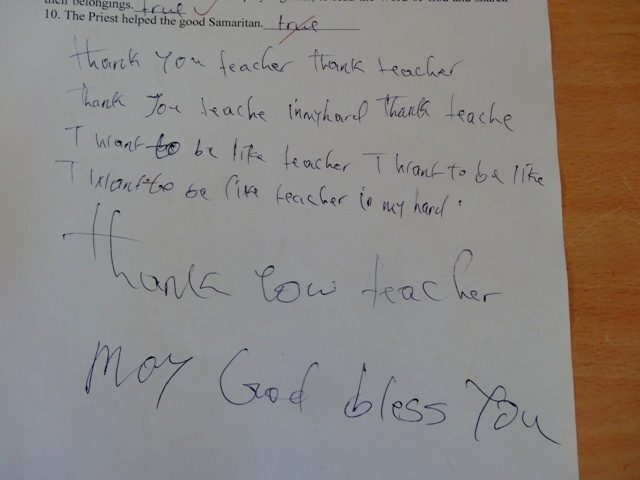 their belongings. true
10. The Priest helped the good Samaritan. true
thank you teacher thank teacher
Thank you teache inmyhard thank teache
I want to be like teacher I want to be like
I want to be like teacher in my hard.
thank you teacher
may God bless you